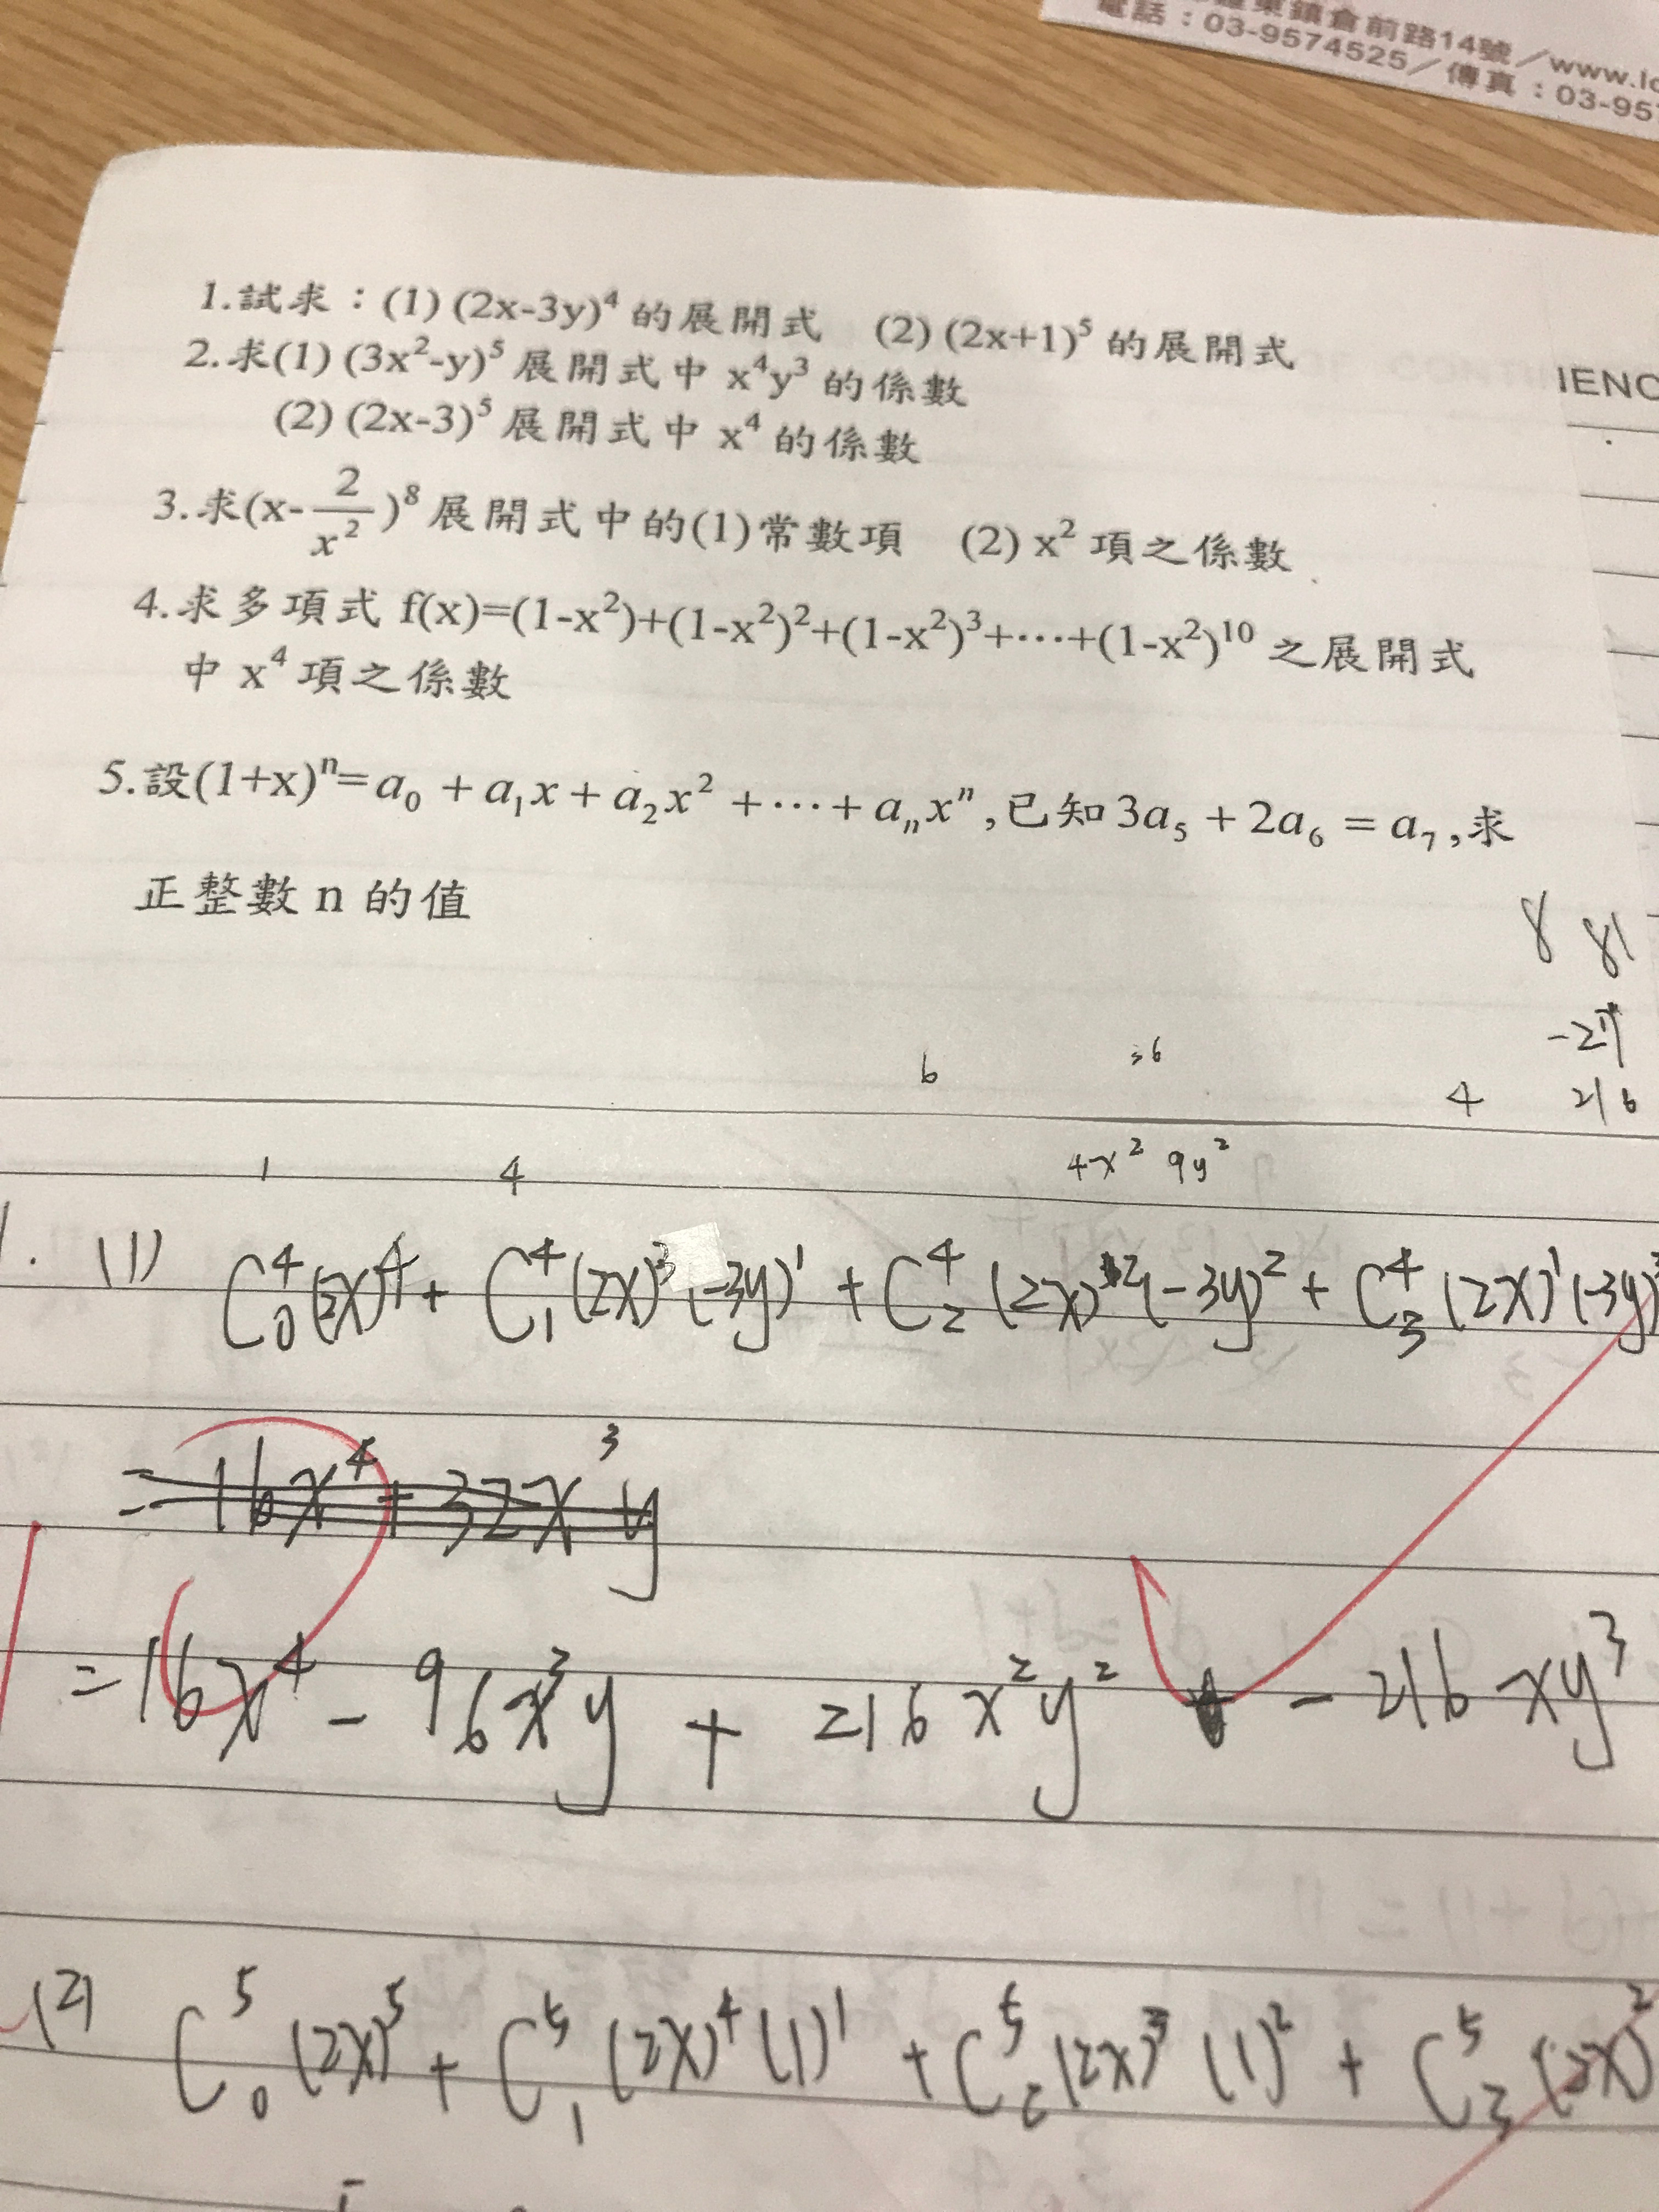 鎮倉前路14號／www.lo
電話：03-9574525／傳真：03-957
1.試求：(1) (2x-3y)⁴ 的展開式 (2) (2x+1)⁵ 的展開式
2.求(1) (3x²-y)⁵ 展開式中 x⁴y³ 的係數
IENC
(2) (2x-3)⁵ 展開式中 x⁴ 的係數
3.求(x-2/x²)⁸ 展開式中的(1)常數項 (2) x² 項之係數
4.求多項式 f(x)=(1-x²)+(1-x²)²+(1-x²)³+⋯+(1-x²)¹⁰ 之展開式
中 x⁴ 項之係數
5.設(1+x)ⁿ=a₀+a₁x+a₂x²+⋯+aₙxⁿ,已知3a₅+2a₆=a₇,求
正整數 n 的值
8 81
-27
6 36
4 216
1 4 4x² 9y²
1. (1) C⁴₀(2x)⁴+C⁴₁(2x)³(-3y)¹+C⁴₂(2x)²(-3y)²+C⁴₃(2x)¹(-3y)³
=16x⁴+32x³y
=16x⁴-96x³y+216x²y²-216xy³
(2) C⁵₀(2x)⁵+C⁵₁(2x)⁴(1)¹+C⁵₂(2x)³(1)²+C⁵₃(2x)²